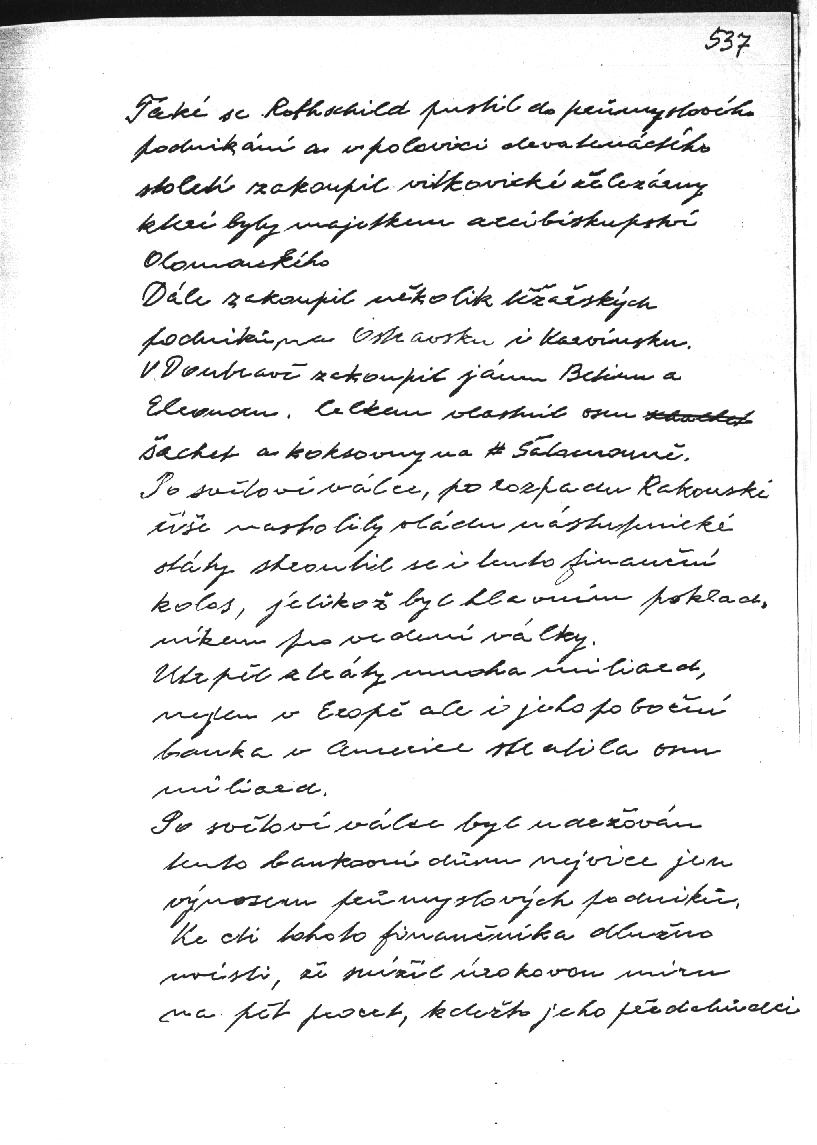 537
Také se Rothschild pustil do průmyslového
podnikání a v polovici devatenáctého
století zakoupil vítkovické železárny
které byly majetkem arcibiskupství
Olomouckého
Dále zakoupil několik těžařských
podniků na Ostravsku i Karvínsku.
V Doubravě zakoupil jámu Betinu a
Eleonoru. Celkem vlastnil osm
šachet a koksovny na # Šalamouně.
Po světové válce, po rozpadu Rakouské
říše nastolily vládu nástupnické
státy zkroutil se i tento finanční
kolos, jelikož byl hlavním poklad.
níkem pro vedení války.
Utrpěl ztráty mnoha miliard,
nejen v Eropě ale i jeho poboční
banka v Americe ztratila osm
miliard.
Po světové válce byl udržován
tento bankovní dům nejvíce jen
výnosem průmyslových podniků.
Ke cti tohoto finančníka dlužno
uvésti, že snížil úrokovou míru
na pět procet, kdežto jeho předchůdci